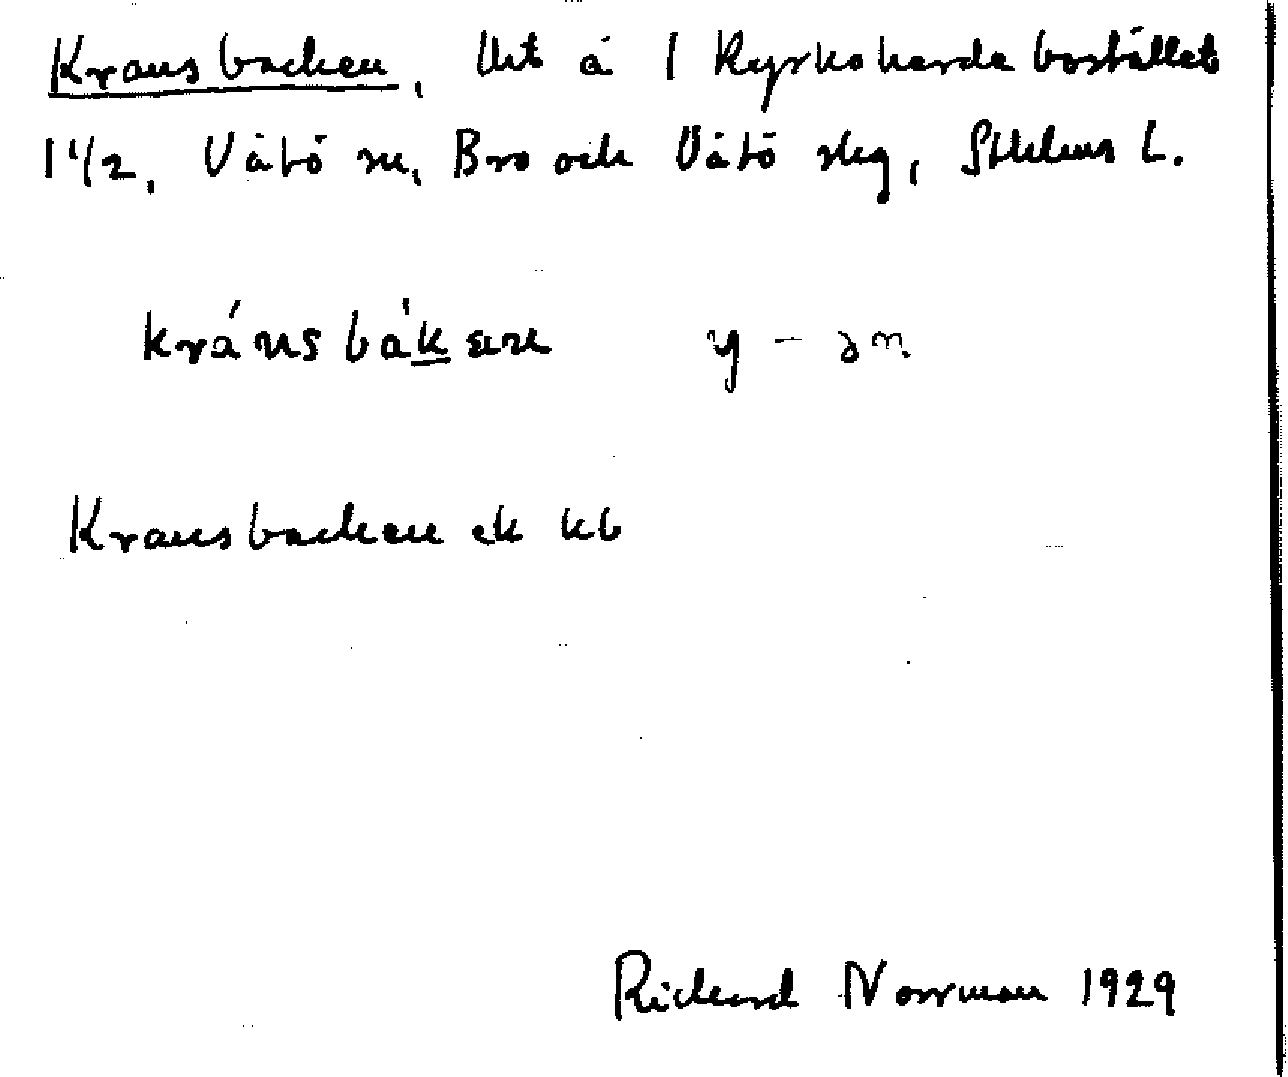 Kransbacken, Urt å 1 Kyrkoherdebostället
1 1/2, Vätö sn, Bro och Vätö skg, Sthlms L.
kránsbàkæn y - ən
Kransbacken ek kb
Rickard Norrman 1929